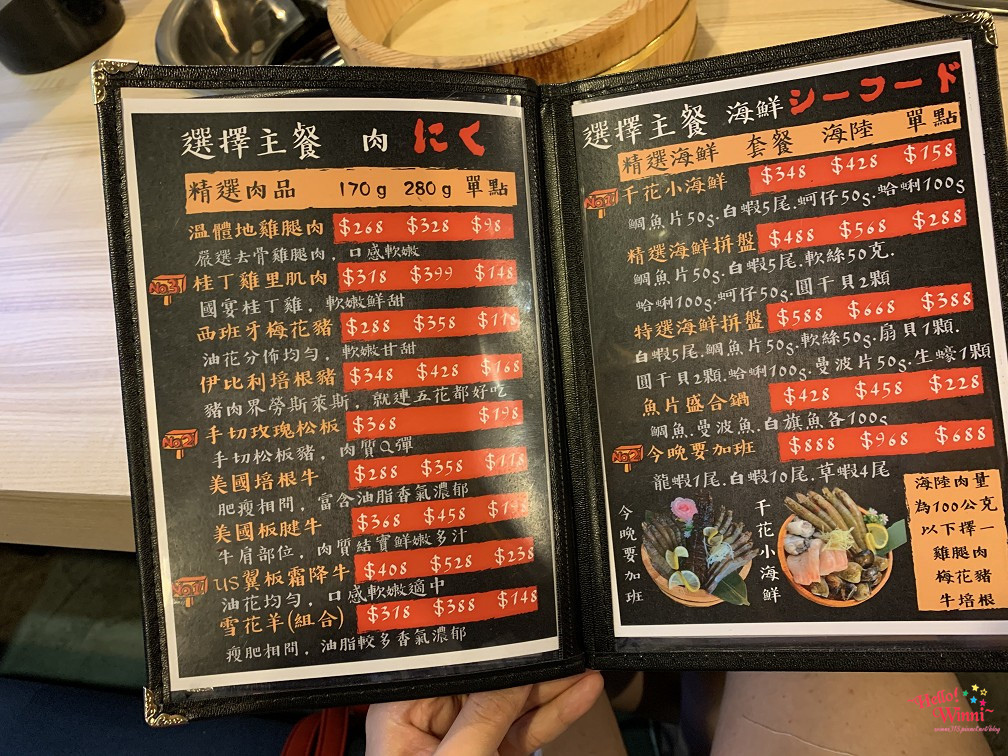 選擇主餐 肉 にく
精選肉品 170g 280g 單點
溫體地雞腿肉 $268 $328 $98
嚴選去骨雞腿肉，口感軟嫩
No3! 桂丁雞里肌肉 $318 $399 $148
國宴桂丁雞，軟嫩鮮甜
西班牙梅花豬 $288 $358 $118
油花分佈均勻，軟嫩甘甜
伊比利培根豬 $348 $428 $168
豬肉界勞斯萊斯，就連五花都好吃
No2! 手切玫瑰松板 $368 $198
手切松板豬，肉質Q彈
美國培根牛 $288 $358 $118
肥瘦相間，富含油脂香氣濃郁
美國板腱牛 $368 $458
牛肩部位，肉質結實鮮嫩多汁
No1! US翼板霜降牛 $408 $528 $238
油花均勻，口感軟嫩適中
雪花羊(組合) $318 $388 $148
瘦肥相間，油脂較多香氣濃郁
選擇主餐 海鮮 シーフード
精選海鮮 套餐 海陸 單點
No1! 千花小海鮮 $348 $428 $158
鯛魚片50g.白蝦5尾.蚵仔50g.蛤蜊100g
精選海鮮拼盤 $488 $568 $288
鯛魚片50g.白蝦5尾.軟絲50克.
蛤蜊100g.蚵仔50g.圓干貝2顆
特選海鮮拼盤 $588 $668 $388
白蝦5尾.鯛魚片50g.軟絲50g.扇貝1顆.
圓干貝2顆.蛤蜊100g.曼波片50g.生蠔1顆
魚片盛合鍋 $428 $458 $228
鯛魚.曼波魚.白旗魚各100g
No2! 今晚要加班 $888 $968 $688
龍蝦1尾.白蝦10尾.草蝦4尾
今晚要加班
千花小海鮮
海陸肉量
為100公克
以下擇一
雞腿肉
梅花豬
牛培根
~Hello!
Winni~